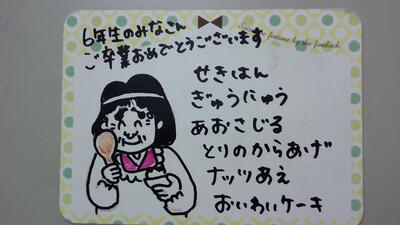 6年生のみなさん
ご卒業おめでとうございます
fortune by the fourleaf
せきはん
ぎゅうにゅう
あおさじる
とりのからあげ
ナッツあえ
おいわいケーキ